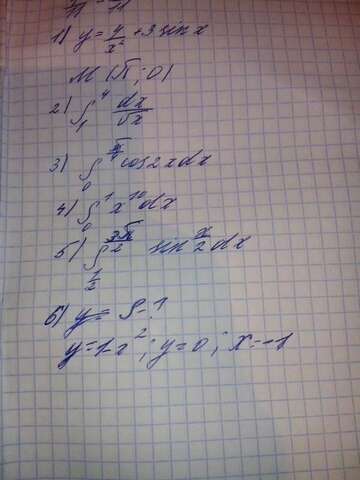 1) y = 4/x² + 3 sin x
M (π; 0)
2) ∫₁⁴ dx/√x
3) ∫₀^(π/4) cos 2x dx
4) ∫₀¹ x¹⁰ dx
5) ∫ sin x/2 dx
6) y = S - ?
y = 1 - x²; y = 0; x = -1